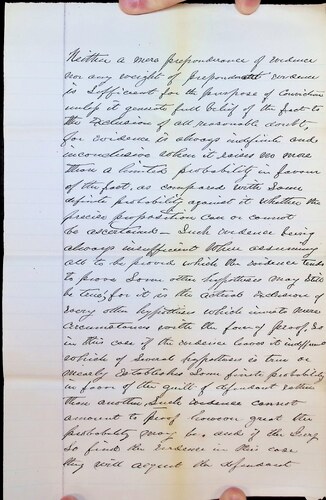 Neither a mere preponderance of evidence
nor any weight of preponderant evidence
is sufficient for the purpose of conviction
unless it generate full belief of the fact to
the exclusion of all reasonable doubt,
for evidence is always indefinite and
inconclusive when it raises no more
than a limited probability in favour
of the fact, as compared with some
definite probability against it whether the
precise proposition can or cannot
be ascertained – Such evidence being
always insufficient where assuming
all to be proved which the evidence tends
to prove some other hypotheses may still
be true, for it is the actual exclusion of
every other hypothesis which invests mere
circumstances with the force of proof, So
in this case if the evidence leaves it indifferent
which of several hypotheses is true or
merely establishes some finite probability
in favor of the guilt of defendant rather
than another, Such evidence cannot
amount to proof however great the
probability may be. and if the Jury
So find the evidence in this case
they will acquit the defendant